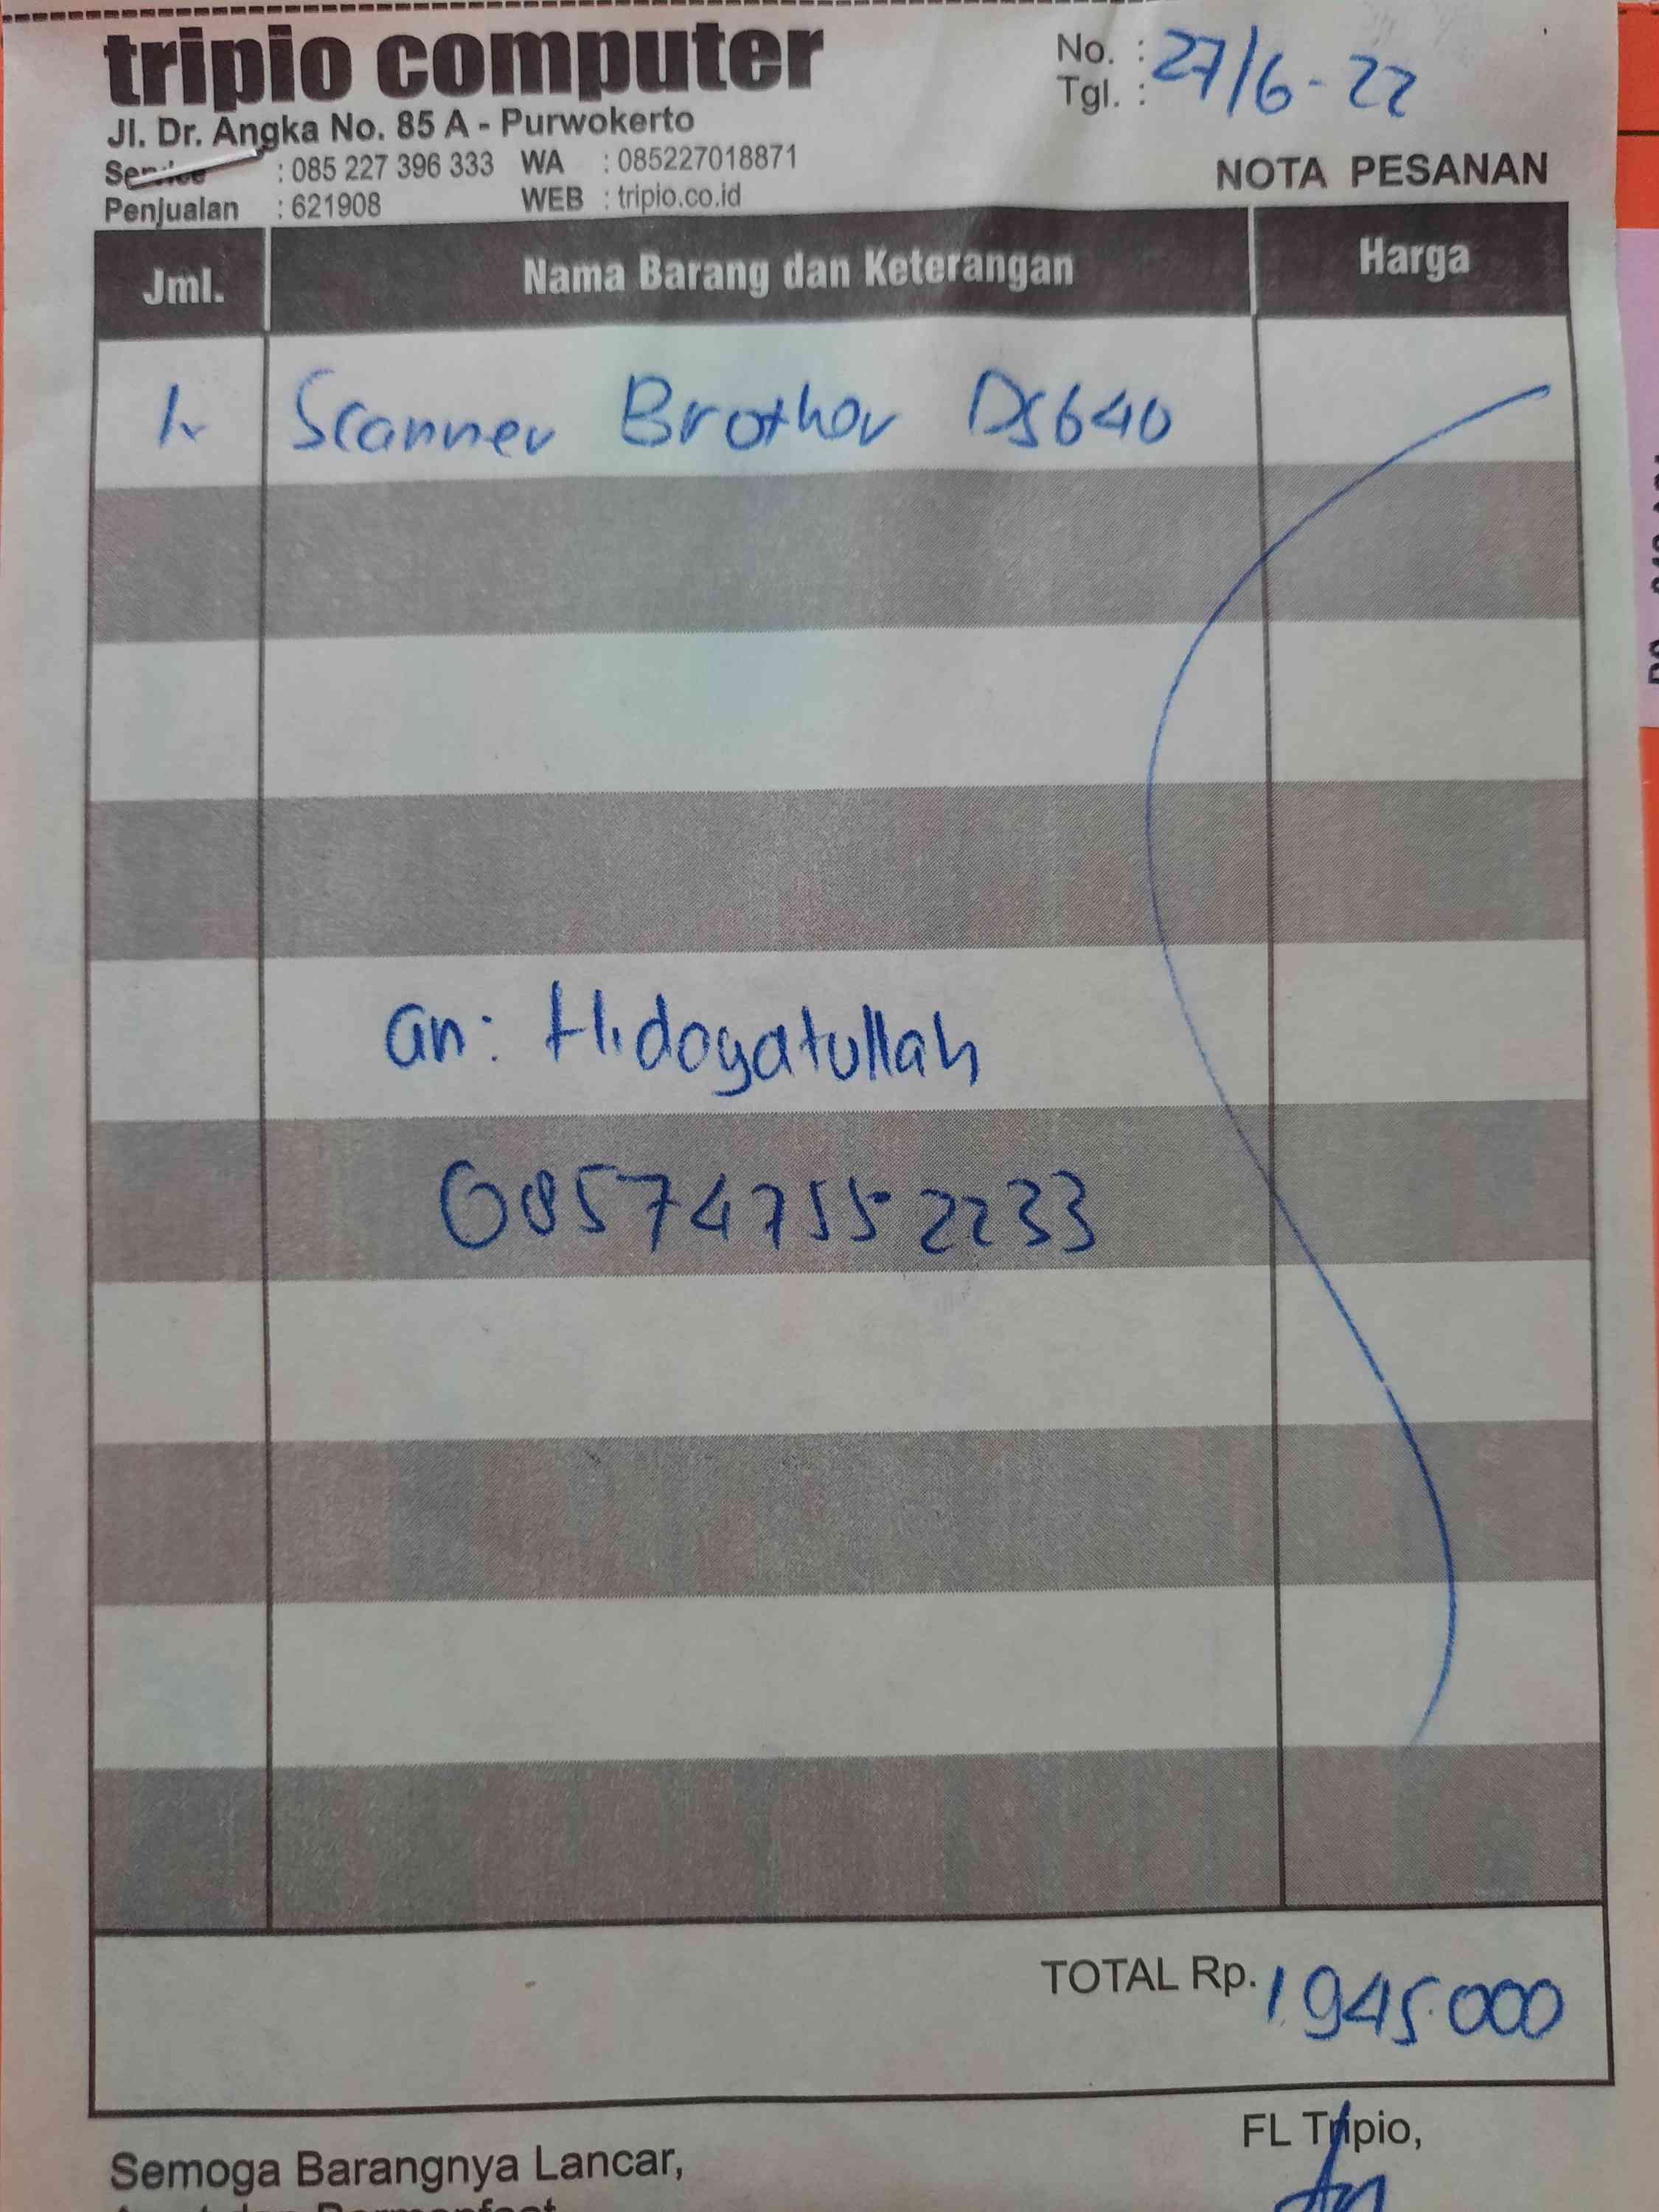 tripio computer
No. :
Tgl. : 27/6-22
Jl. Dr. Angka No. 85 A - Purwokerto
Service : 085 227 396 333 WA : 085227018871
Penjualan : 621908 WEB : tripio.co.id
NOTA PESANAN
Jml. Nama Barang dan Keterangan Harga
1 Scanner Brother DS640
an: Hidayatullah
085747552233
TOTAL Rp. 1.945.000
FL Tripio,
Semoga Barangnya Lancar,